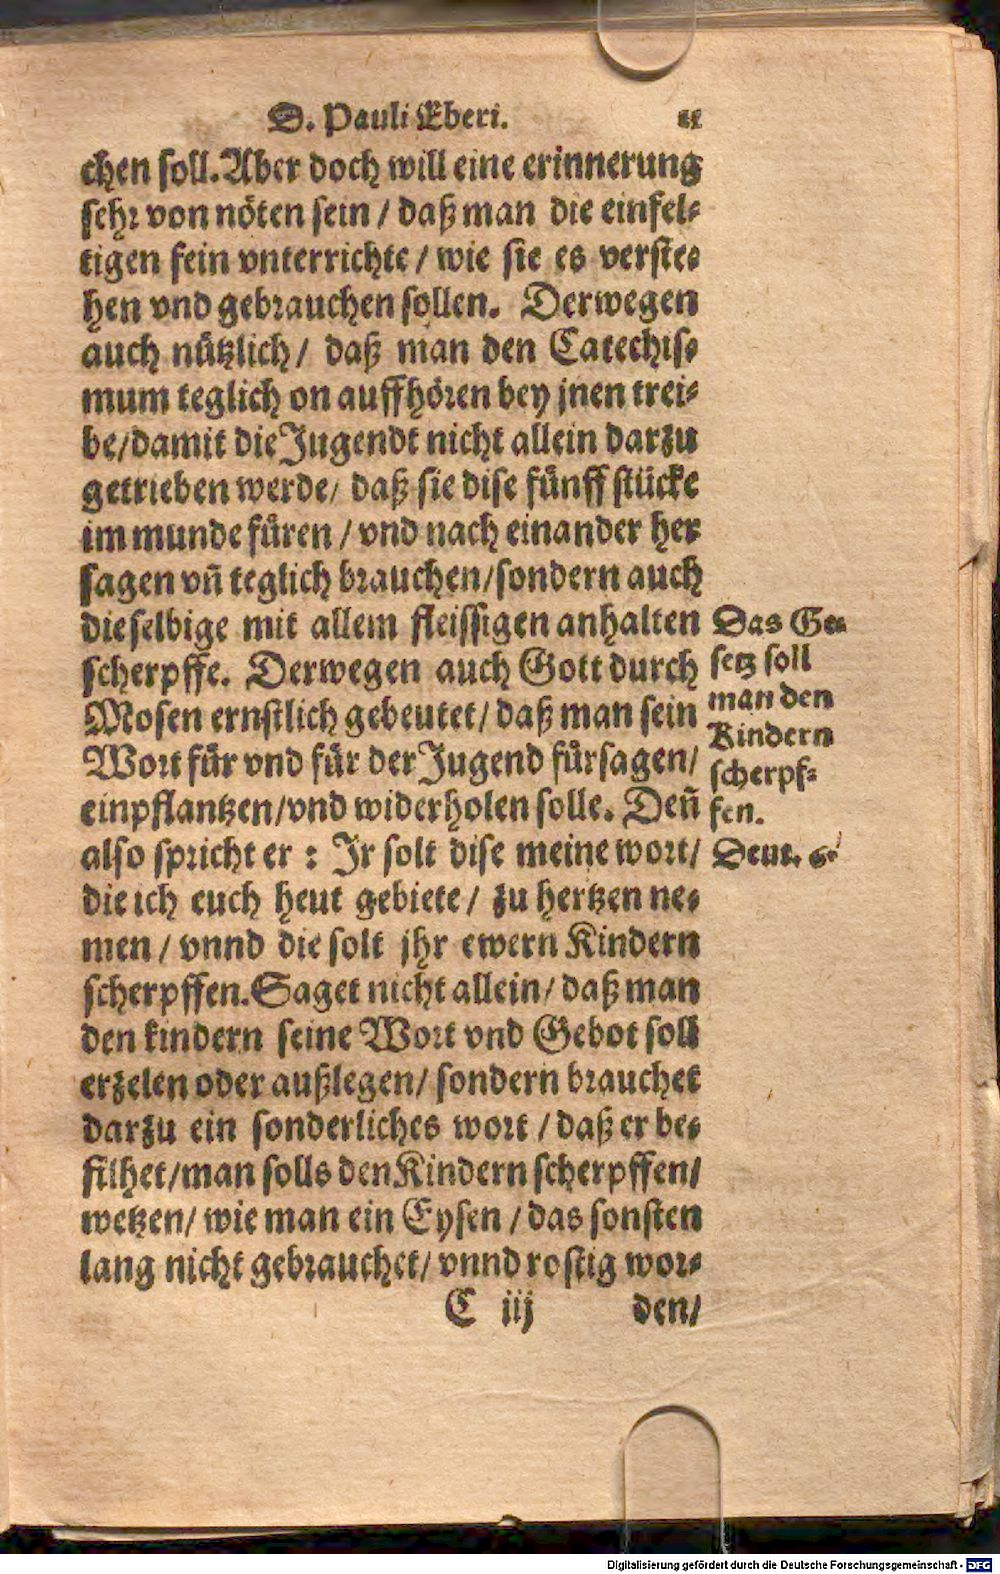 D. Pauli Eberi. 11
chen soll. Aber doch will eine erinnerung
sehr von nöten sein / daß man die einfel-
tigen fein vnterrichte / wie sie es verste-
hen vnd gebrauchen sollen. Derwegen
auch nützlich / daß man den Catechis-
mum teglich on auffhören bey jnen trei-
be / damit die Jugendt nicht allein darzu
getrieben werde / daß sie dise fünff stücke
im munde füren / vnd nach einander her
sagen vñ teglich brauchen / sondern auch
dieselbige mit allem fleissigen anhalten
scherpffe. Derwegen auch Gott durch
Mosen ernstlich gebeutet / daß man sein
Wort für vnd für der Jugend fürsagen /
einpflantzen / vnd widerholen solle. Deñ
also spricht er : Jr solt dise meine wort /
die ich euch heut gebiete / zu hertzen ne-
men / vnnd die solt jhr ewern Kindern
scherpffen. Saget nicht allein / daß man
den kindern seine Wort vnd Gebot soll
erzelen oder außlegen / sondern brauchet
darzu ein sonderliches wort / daß er be-
filhet / man solls den Kindern scherpffen /
wetzen / wie man ein Eysen / das sonsten
lang nicht gebrauchet / vnnd rostig wor-
C iij den /
Das Ge-
setz soll
man den
Kindern
scherpf-
fen.
Deut. 6.
Digitalisierung gefördert durch die Deutsche Forschungsgemeinschaft - DFG